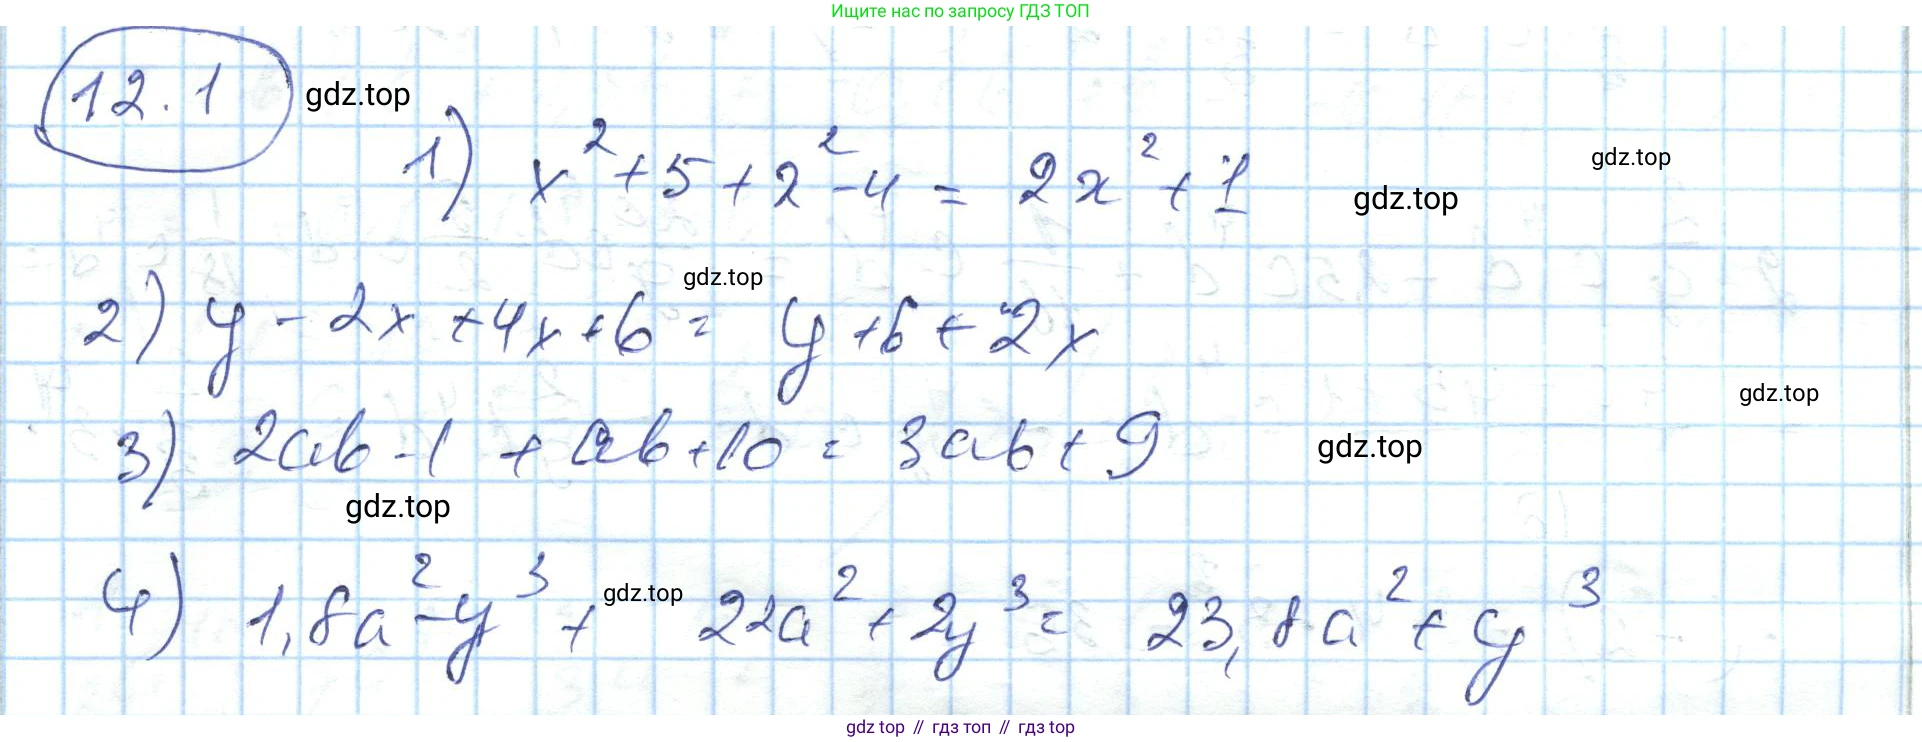 Ищите нас по запросу ГДЗ ТОП
12.1 gdz.top
1) x² + 5 + 2² - 4 = 2x² + 1 gdz.top gdz.top
gdz.top
2) y - 2x + 4x + 6 = y + 6 + 2x
gdz.top
3) 2ab - 1 + ab + 10 = 3ab + 9 gdz.top
gdz.top
4) 1,8a² - y³ + gdz.top 22a² + 2y³ = 23,8a² + y³
gdz top // гдз топ // гдз top